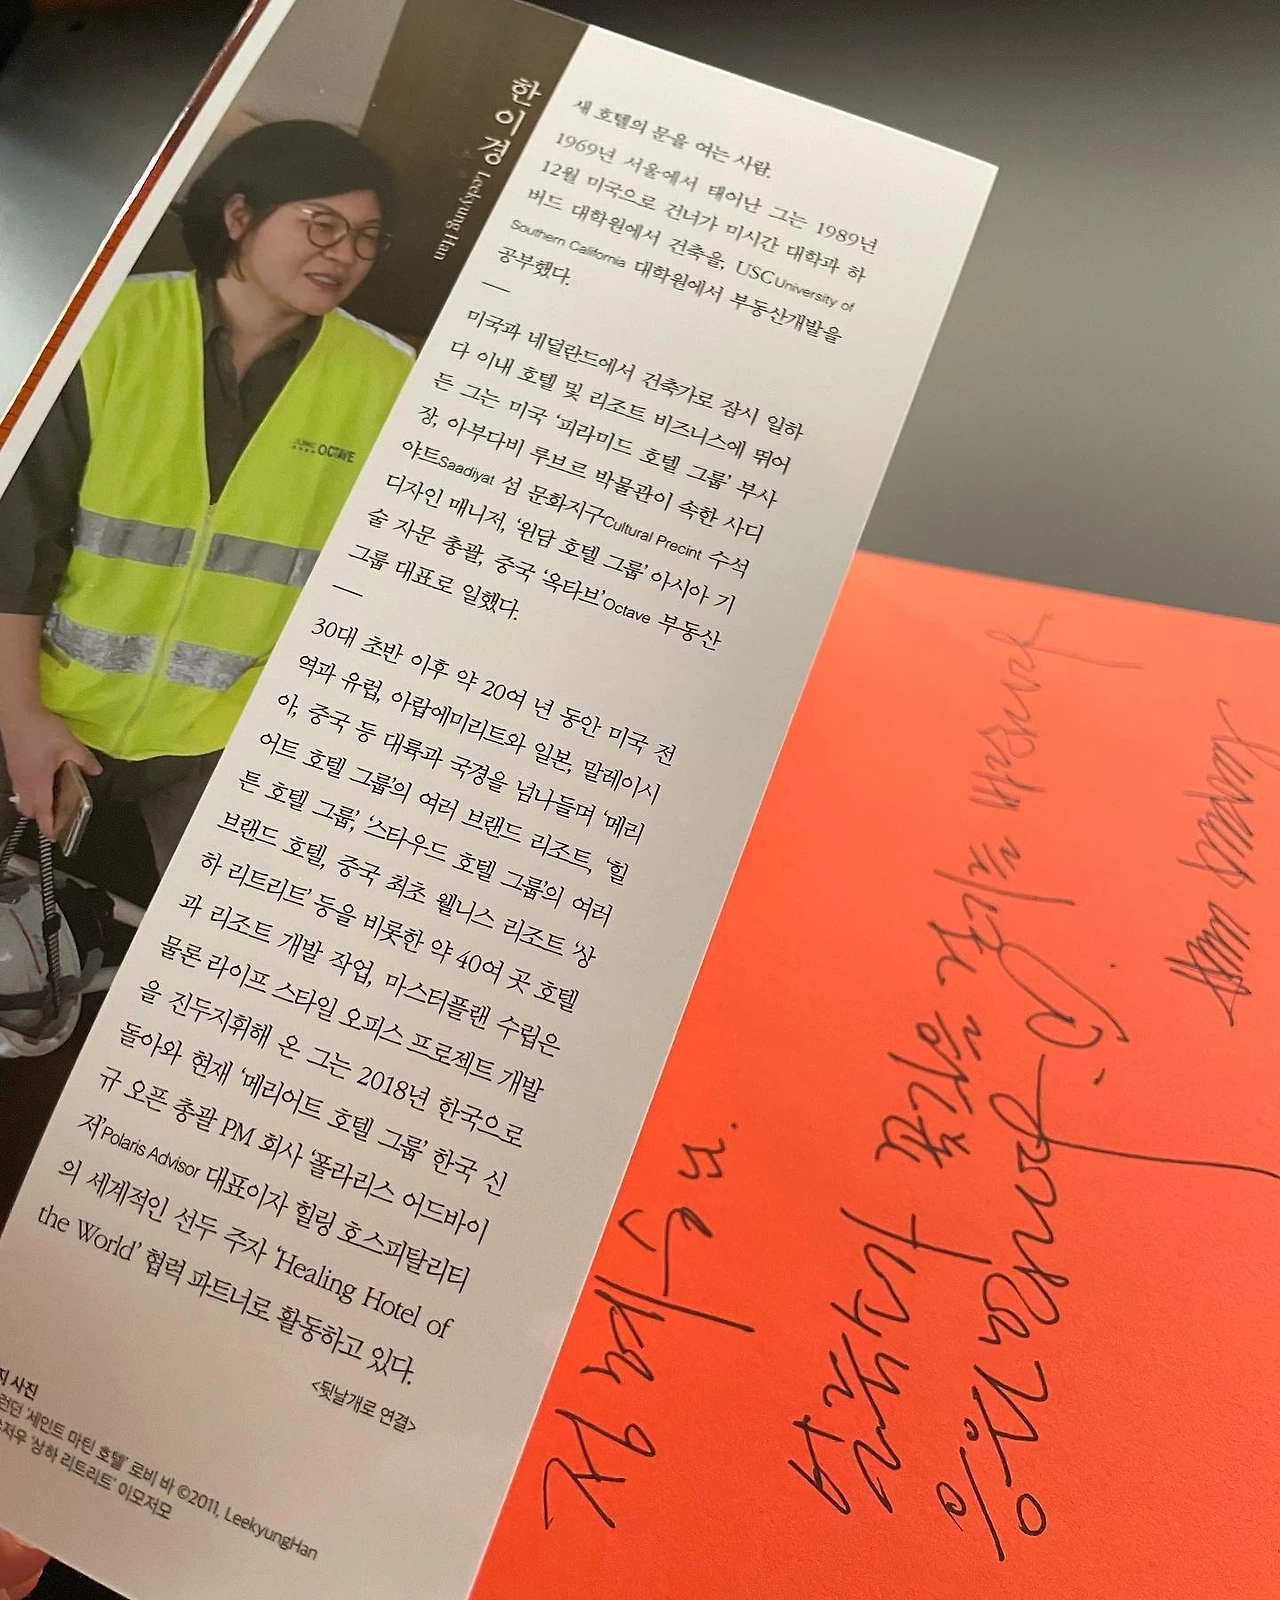 한이경 Leekyung Han
OCTAVE
새 호텔의 문을 여는 사람.
1969년 서울에서 태어난 그는 1989년
12월 미국으로 건너가 미시간 대학과 하
버드 대학원에서 건축을, USC University of
Southern California 대학원에서 부동산개발을
공부했다.
—
미국과 네덜란드에서 건축가로 잠시 일하
다 이내 호텔 및 리조트 비즈니스에 뛰어
든 그는 미국 '피라미드 호텔 그룹' 부사
장, 아부다비 루브르 박물관이 속한 사디
야트Saadiyat 섬 문화지구Cultural Precint 수석
디자인 매니저, '윈담 호텔 그룹' 아시아 기
술 자문 총괄, 중국 '옥타브'Octave 부동산
그룹 대표로 일했다.
—
30대 초반 이후 약 20여 년 동안 미국 전
역과 유럽, 아랍에미리트와 일본, 말레이시
아, 중국 등 대륙과 국경을 넘나들며 '메리
어트 호텔 그룹'의 여러 브랜드 리조트, '힐
튼 호텔 그룹', '스타우드 호텔 그룹'의 여러
브랜드 호텔, 중국 최초 웰니스 리조트 '상
하 리트리트' 등을 비롯한 약 40여 곳 호텔
과 리조트 개발 작업, 마스터플랜 수립은
물론 라이프 스타일 오피스 프로젝트 개발
을 진두지휘해 온 그는 2018년 한국으로
돌아와 현재 '메리어트 호텔 그룹' 한국 신
규 오픈 총괄 PM 회사 '폴라리스 어드바이
저'Polaris Advisor 대표이자 힐링 호스피탈리티
의 세계적인 선두 주자 'Healing Hotel of
the World' 협력 파트너로 활동하고 있다.
<뒷날개로 연결>
지 사진
런던 '세인트 마틴 호텔' 로비 바 ©2011, LeekyungHan
저우 '상하 리트리트' 이모저모